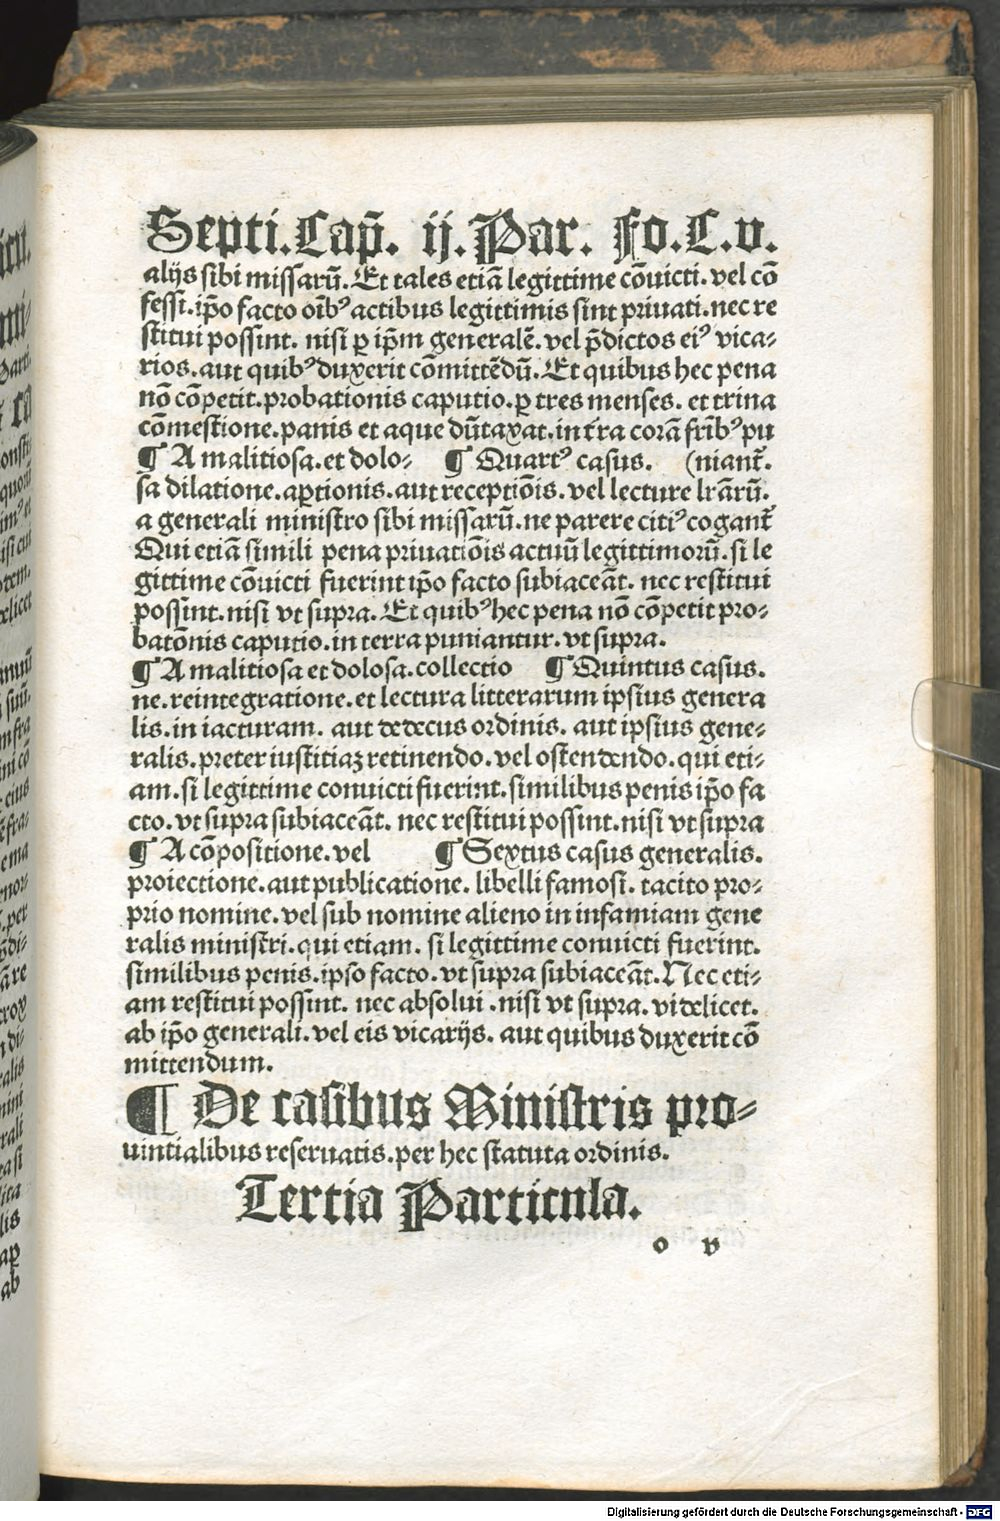 Septi.Cap̃. ij.Par. Fo.C.v.
alijs sibi missarū. Et tales etiā legittime cōuicti. vel cō
fessi. ip̃o facto oĩbꝰ actibus legittimis sint priuati. nec re
stitui possint. nisi ꝑ ip̃m generalē. vel p̄dictos eiꝰ vica-
rios. aut quibꝰ duxerit cōmittēdū. Et quibus hec pena
nō cōpetit. probationis caputio. ꝑ tres menses. et trina
cōmestione. panis et aque dūtaxat. in t̃ra corā frībꝰ pu
¶ A malitiosa. et dolo- ¶ Quartꝰ casus. (niant̃.
sa dilatione. aꝑtionis. aut receptiōis. vel lecture lr̄arū.
a generali ministro sibi missarū. ne parere citiꝰ cogant̃
Qui etiā simili pena priuatiōis actuū legittimorū. si le
gittime cōuicti fuerint ip̃o facto subiaceāt. nec restitui
possint. nisi vt supra. Et quibꝰ hec pena nō cōpetit pro-
batōnis caputio. in terra puniantur. vt supra.
¶ A malitiosa et dolosa. collectio ¶ Quintus casus.
ne. reintegratione. et lectura litterarum ipsius genera
lis. in iacturam. aut dedecus ordinis. aut ipsius gene-
ralis. preter iustitiaꝫ retinendo. vel ostendendo. qui eti-
am. si legittime conuicti fuerint. similibus penis ip̃o fa
cto. vt supra subiaceāt. nec restitui possint. nisi vt supra
¶ A cōpositione. vel ¶ Sextus casus generalis.
proiectione. aut publicatione. libelli famosi. tacito pro-
prio nomine. vel sub nomine alieno in infamiam gene
ralis ministri. qui etiam. si legittime conuicti fuerint.
similibus penis. ipso facto. vt supra subiaceāt. Nec eti-
am restitui possint. nec absolui. nisi vt supra. videlicet.
ab ip̃o generali. vel eis vicarijs. aut quibus duxerit cō
mittendum.
¶ De casibus Ministris pro-
uintialibus reseruatis. per hec statuta ordinis.
Tertia Particula.
o v
Digitalisierung gefördert durch die Deutsche Forschungsgemeinschaft - DFG